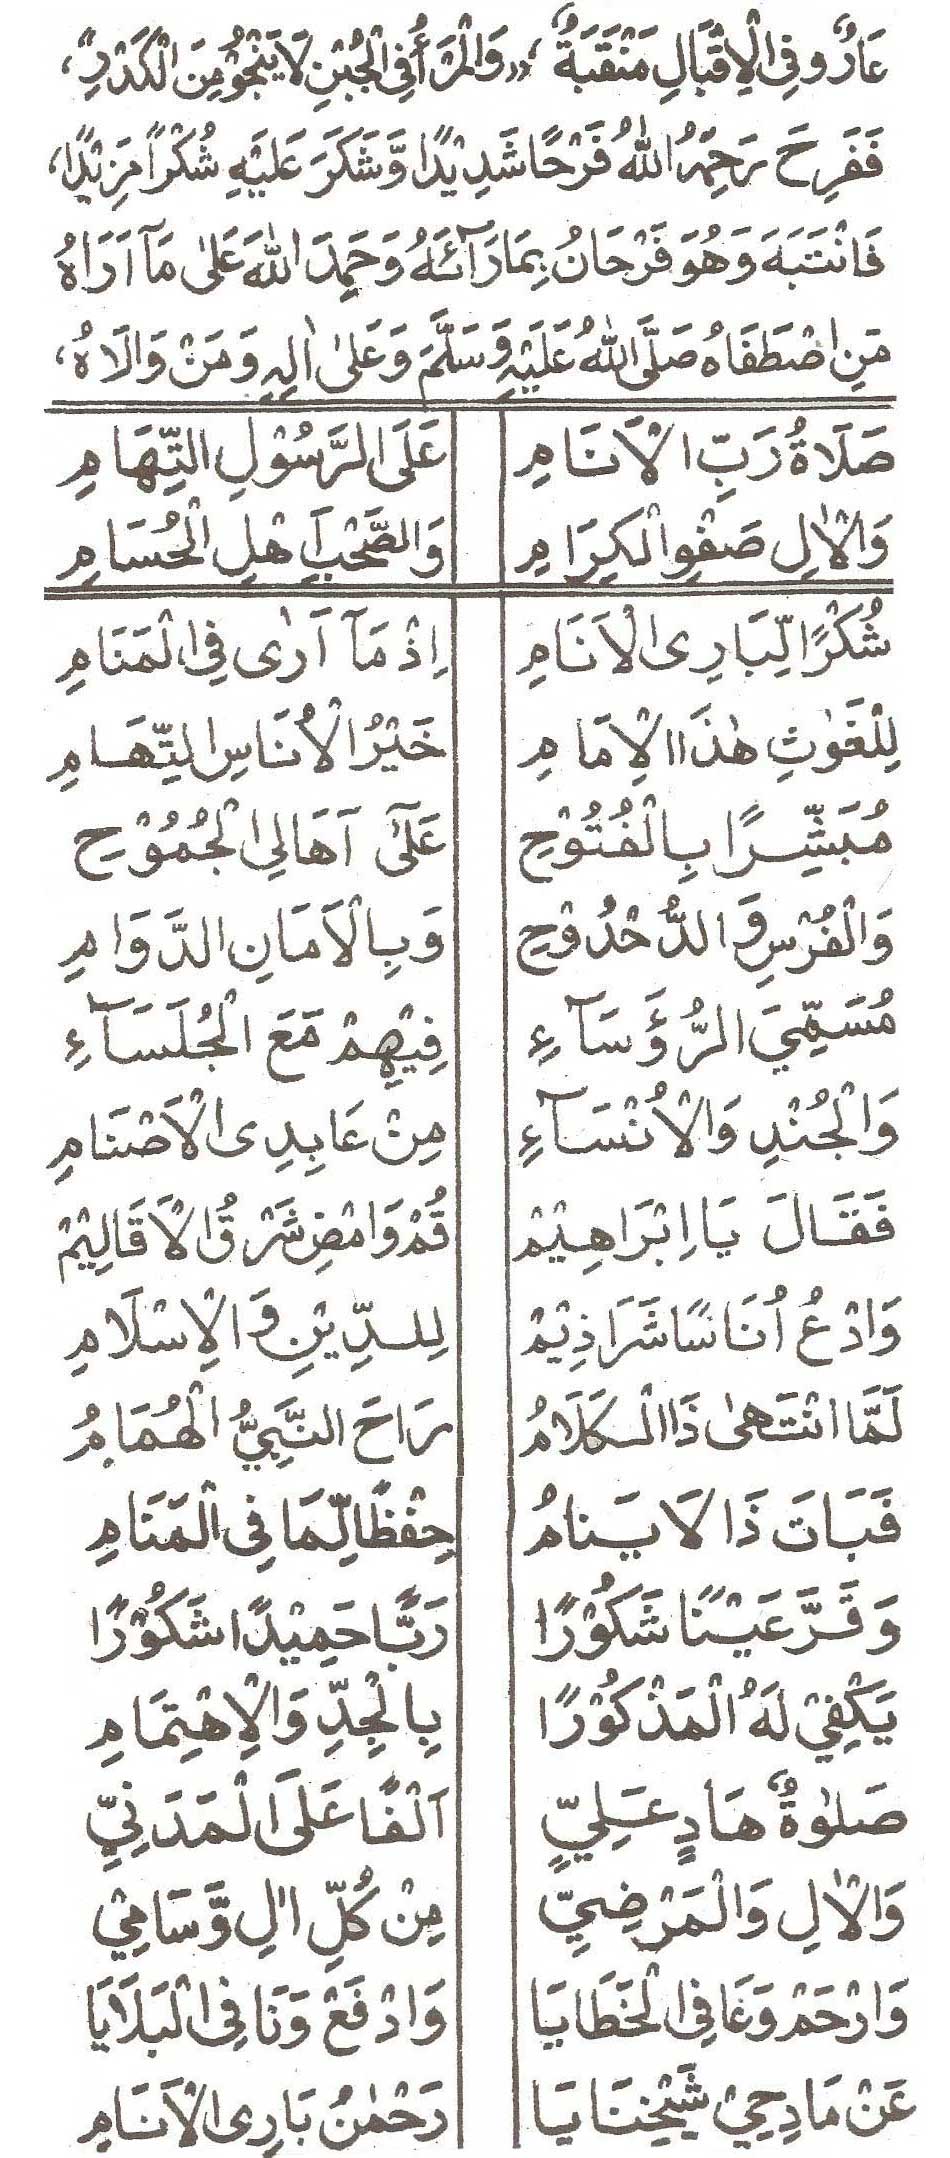 عَارٌ وَفِى الْاِقْبَالِ مَنْقَبَةٌ ، «وَالْمَرْأُ فِى الْجُبْنِ لَا يَنْجُوْ مِنَ الْكَدَرِ» ،
فَفَرِحَ رَحِمَهُ اللّٰهُ فَرْحًا شَدِيْدًا وَّشَكَرَ عَلَيْهِ شُكْرًا مَزِيْدًا ،
فَانْتَبَهَ وَهُوَ فَرْحَانُ بِمَا رَآئَهُ وَحَمِدَ اللّٰهَ عَلٰى مَآ اَرَاهُ
مَنِ اصْطَفَاهُ صَلَّى اللّٰهُ عَلَيْهِ وَسَلَّمَ وَعَلٰى اٰلِهِ وَمَنْ وَالَاهُ ،
صَلَاةُ رَبِّ الْاَنَامِ عَلَى الرَّسُوْلِ التِّهَامِ
وَالْاٰلِ صَفْوِ الْكِرَامِ وَالصَّحْبِ اَهْلِ الْحُسَامِ
شُكْرًا لِّبَارِى الْاَنَامِ اِذْ مَآ اَرٰى فِى الْمَنَامِ
لِلْغَوْثِ هٰذَا الْاِمَامِ خَيْرُ الْاُنَاسِ التِّهَامِ
مُبَشِّرًا بِالْفُتُوْحِ عَلٰٓى اَهَالِى الْجُمُوْحِ
وَالْفُرْسِ وَ الدُّخْدُوْحِ وَبِالْاَمَانِ الدَّوَامِ
مُسَمِّيَ الرُّؤَسَآءِ فِيْهِمْ مَعَ الْجُلَسَآءِ
وَالْجُنْدِ وَالْاُنْسَآءِ مِنْ عَابِدِى الْاَصْنَامِ
فَقَالَ يَا اِبْرَاهِيْمْ قُمْ وَامْضِ شَرْقُ الْاَقَالِيْمْ
وَادْعُ اُنَاسًا شَرَاذِيْمْ لِلدِّيْنِ وَ الْاِسْلَامِ
لَمَّا انْتَهٰى ذَا الْكَلَامُ رَاحَ النَّبِيُّ الْهُمَامُ
فَبَاتَ ذَا لَا يَنَامُ حِفْظًا لِّمَا فِى الْمَنَامِ
وَقَرَّ عَيْنًا شَكُوْرًا رَبًّا حَمِيْدًا شَكُوْرًا
يَكْفِيْ لَهُ الْمَذْكُوْرًا بِالْجِدِّ وَالْاِهْتِمَامِ
صَلٰوةُ هَادٍ عَلِيٍّ اَلْفًا عَلَى الْمَدَنِيِّ
وَالْاٰلِ وَالْمَرْضِيِّ مِنْ كُلِّ اٰلِ وَّسَامِيْ
وَارْحَمْ وَعَافِى الْخَطَايَا وَادْفَعْ وَنَافِى الْبَلَايَا
عَنْ مَادِحِيْ شَيْخِنَا يَا رَحْمٰنُ بَارِى الْاَنَامِ